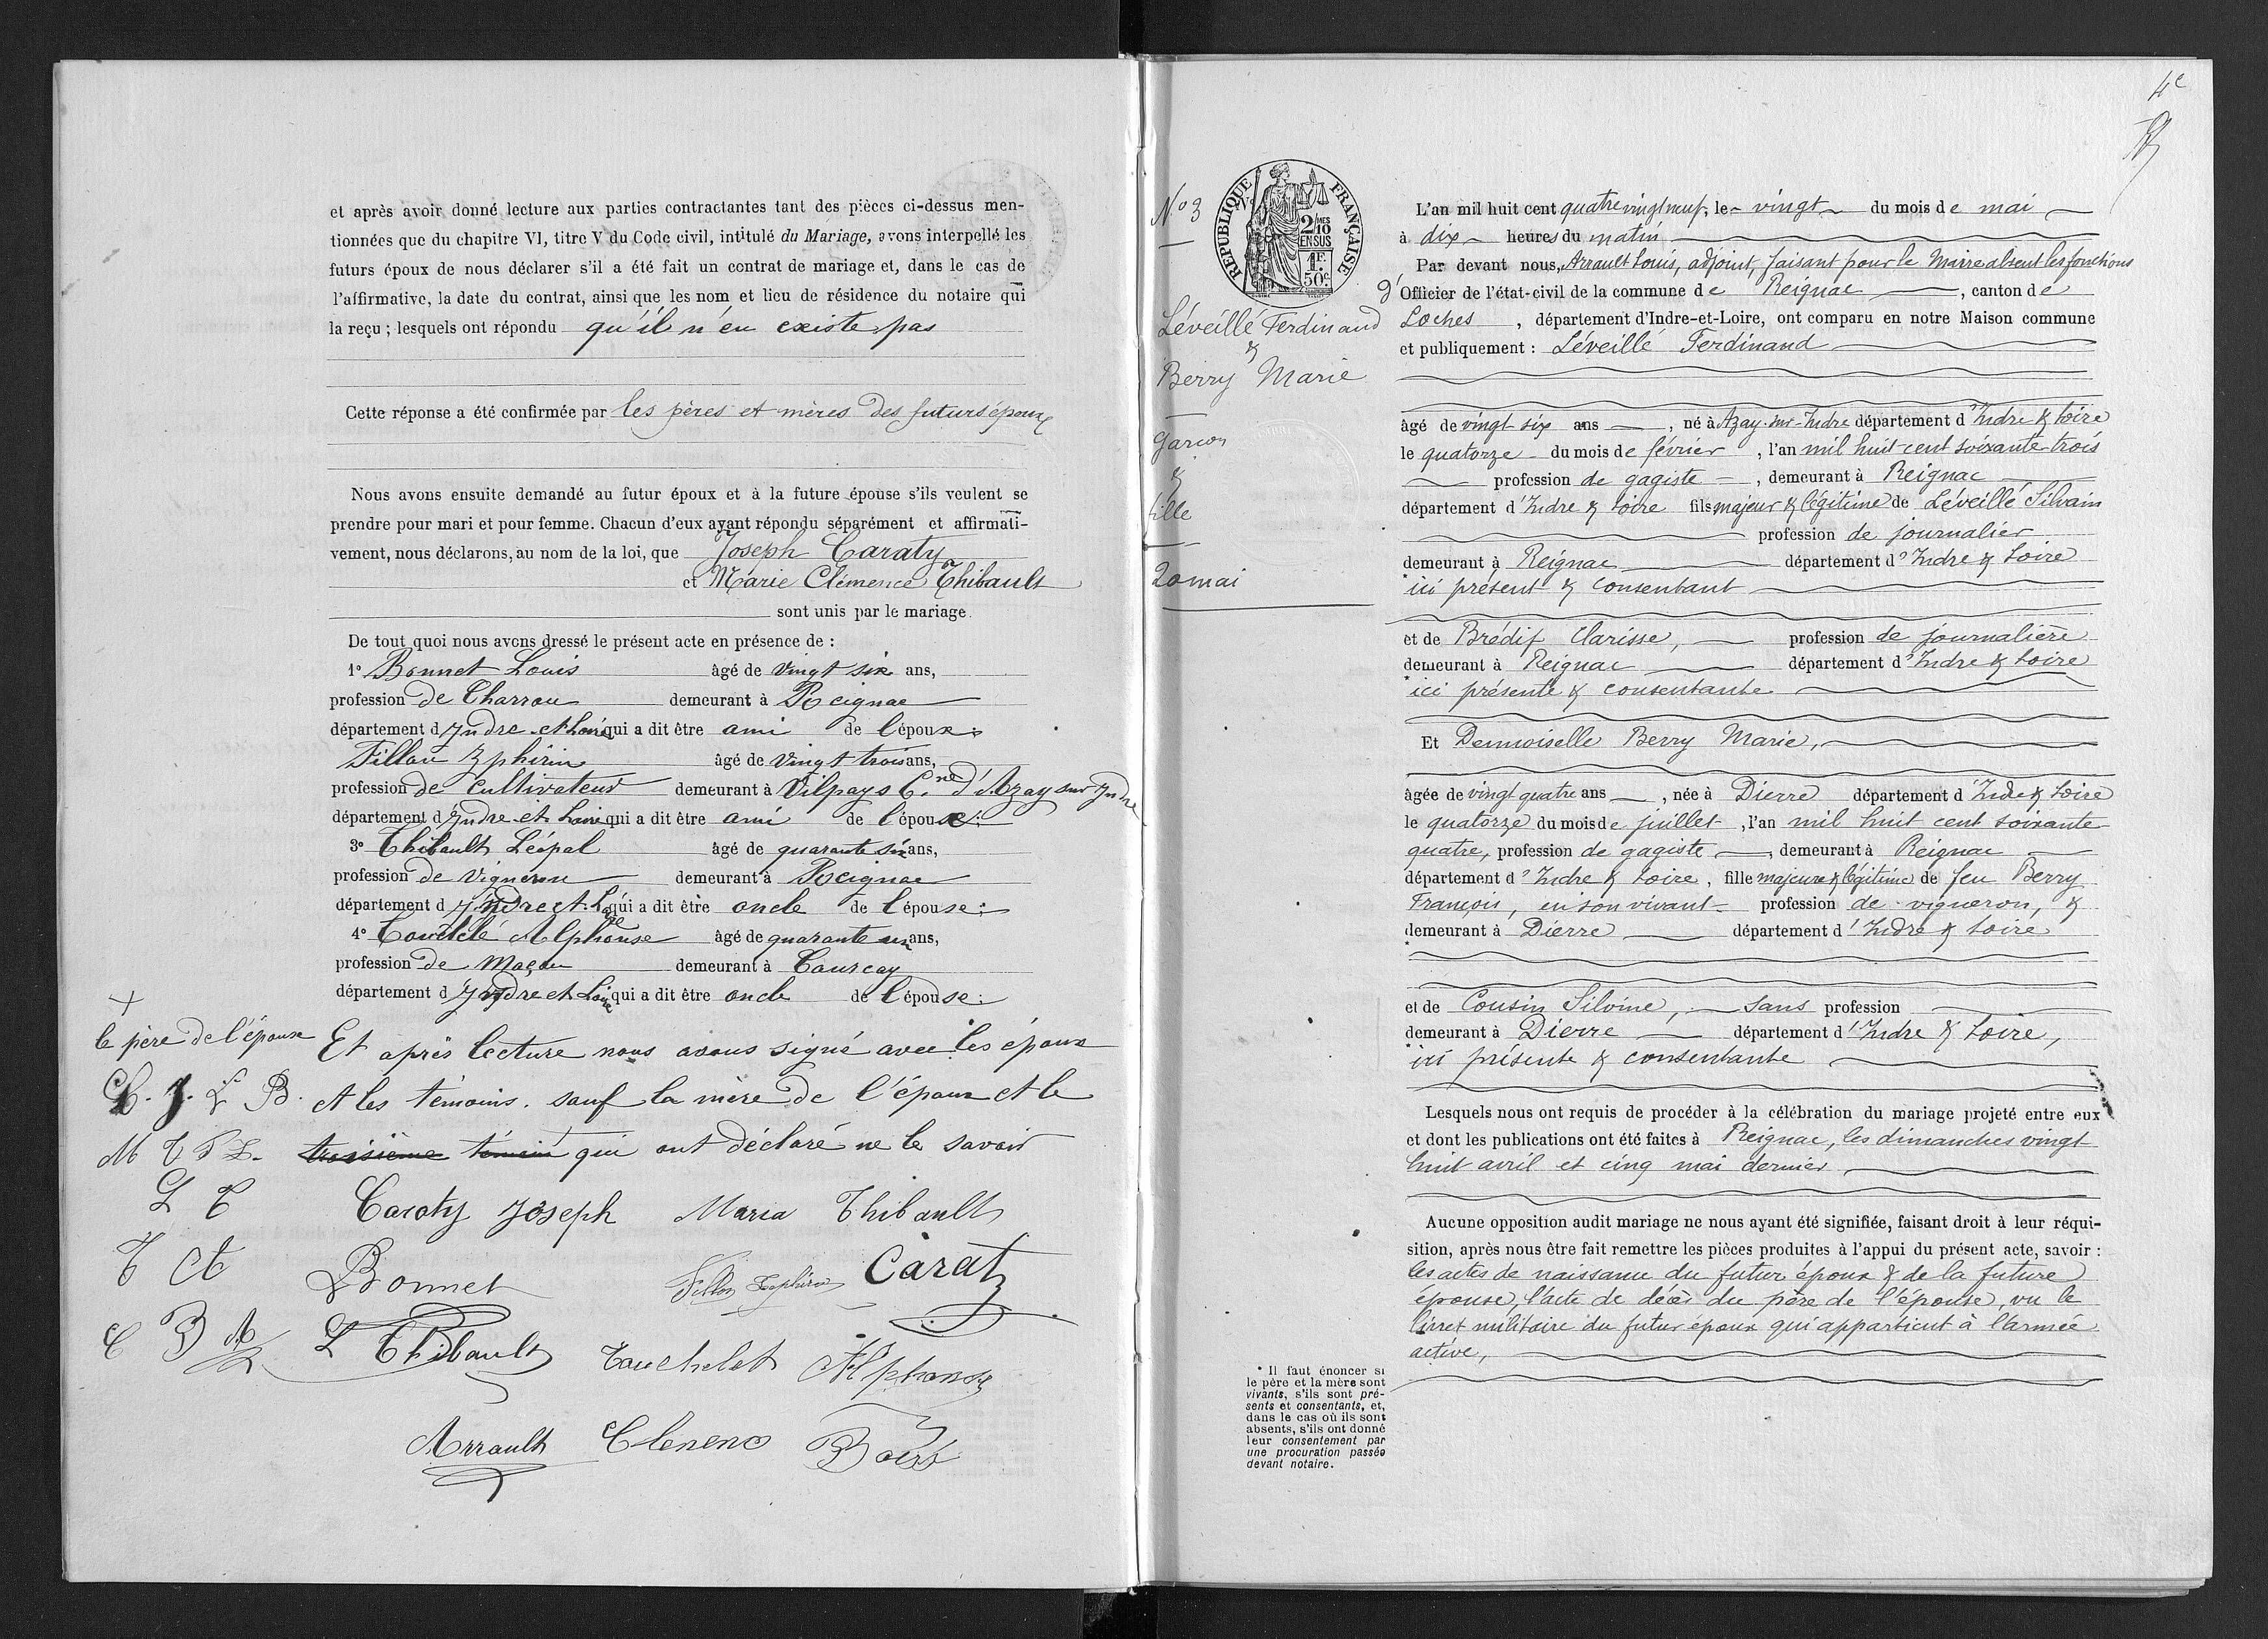 et après avoir donné lecture aux parties contractantes tant des pièces ci-dessus men-
tionnées que du chapitre VI, titre V du Code civil, intitulé du Mariage, avons interpellé les
futurs époux de nous déclarer s'il a été fait un contrat de mariage et, dans le cas de
l'affirmative, la date du contrat, ainsi que les nom et lieu de résidence du notaire qui
la reçu ; lesquels ont répondu qu'il n'en existe pas
Cette réponse a été confirmée par les pères et mères des futurs époux
Nous avons ensuite demandé au futur époux et à la future épouse s'ils veulent se
prendre pour mari et pour femme. Chacun d'eux ayant répondu séparément et affirmati-
vement, nous déclarons, au nom de la loi, que Joseph Caraty
et Marie Clémence Thibault
sont unis par le mariage.
De tout quoi nous avons dressé le présent acte en présence de :
1° Bonnet Louis âgé de vingt six ans,
profession de Charron demeurant à Reignac
département d'Indre et Loire qui a dit être ami de l'époux ;
Fillon Zphirin âgé de vingt trois ans,
profession de cultivateur demeurant à Vilpays Cne d'Azay sur Indre
département d'Indre et Loire qui a dit être ami de l'époux ;
3° Thibault Léopal âgé de quarante six ans,
profession de vigneron demeurant à Reignac
département d'Indre et Loire qui a dit être oncle de l'épouse ;
4° Alphonse âgé de quarante un ans,
profession de maçon demeurant à Courcay
département d'Indre et Loire qui a dit être oncle de l'épouse ;
+
le père de l'épouse
Et après lecture nous avons signé avec les époux
C. J. L B.
et les témoins. sauf la mère de l'époux et le
M T F Z.
troisième témoin qui ont déclaré ne le savoir
L T
Caraty Joseph Maria Thibault
T A
Bonnet Fillon Zephirin Carat
C B A
L Thibault Touchelet Alphonse
Arrault Clemenc
4e
N° 3
RÉPUBLIQUE FRANÇAISE
2/10 MES
EN SUS
1F.
50c.
Léveillé Ferdinand
&
Berry Marie
Garçon
&
fille
20 mai
L'an mil huit cent quatre vingt neuf, le vingt du mois de mai
à dix heures du matin
Par devant nous, Arrault Louis, adjoint, faisant pour le Maire absent les fonctions
d'Officier de l'état-civil de la commune de Reignac, canton de
Loches, département d'Indre-et-Loire, ont comparu en notre Maison commune
et publiquement : Léveillé Ferdinand
âgé de vingt six ans, né à Azay-sur-Indre département d'Indre & Loire
le quatorze du mois de février, l'an mil huit cent soixante trois
profession de gagiste, demeurant à Reignac
département d'Indre & Loire fils majeur & légitime de Léveillé Silvain
profession de journalier
demeurant à Reignac département d'Indre & Loire
* ici présent & consentant
et de Brédif Clarisse, profession de journalière
demeurant à Reignac département d'Indre & Loire
* ici présente & consentante
Et Demoiselle Berry Marie,
âgée de vingt quatre ans, née à Dierre département d'Indre & Loire
le quatorze du mois de juillet, l'an mil huit cent soixante
quatre, profession de gagiste, demeurant à Reignac
département d'Indre & Loire, fille majeure & légitime de feu Berry
François, en son vivant profession de vigneron, &
demeurant à Dierre département d'Indre & Loire
*
et de Cousin Silvine, sans profession
demeurant à Dierre département d'Indre & Loire,
* ici présente & consentante
Lesquels nous ont requis de procéder à la célébration du mariage projeté entre eux
et dont les publications ont été faites à Reignac, les dimanches vingt
huit avril et cinq mai dernier
Aucune opposition audit mariage ne nous ayant été signifiée, faisant droit à leur réqui-
sition, après nous être fait remettre les pièces produites à l'appui du présent acte, savoir :
les actes de naissance du futur époux & de la future
épouse, l'acte de décès du père de l'épouse, vu le
livret militaire du futur époux qui appartient à l'armée
active,
* Il faut énoncer si
le père et la mère sont
vivants, s'ils sont pré-
sents et consentants, et,
dans le cas où ils sont
absents, s'ils ont donné
leur consentement par
une procuration passée
devant notaire.